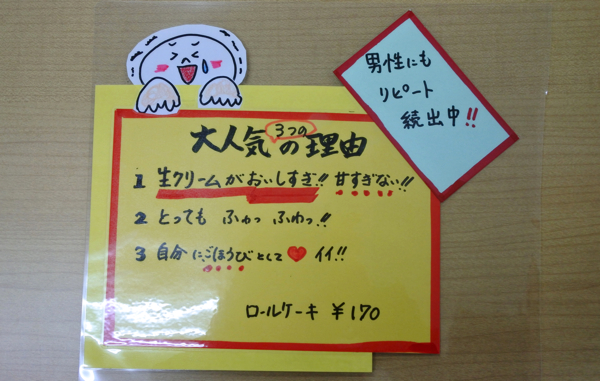 男性にも
リピート
続出中!!
3つの
大人気の理由
1 生クリームがおいしすぎ!! 甘すぎない!!
2 とっても ふわっ ふわっ!!
3 自分にごほうびとして♥イイ!!
ロールケーキ ¥170